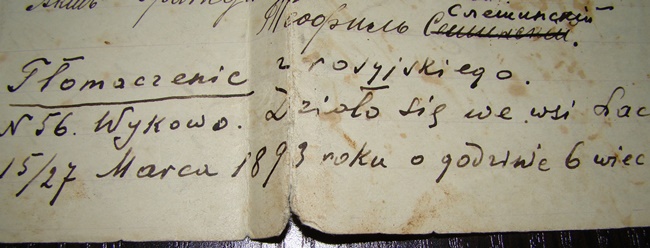 Теофиль Слешинский.
Tłomaczenie z rosyjskiego.
N 56. Wykowo. Działo się we wsi Łac
15/27 Marca 1893 roku o godzinie 6 wiec